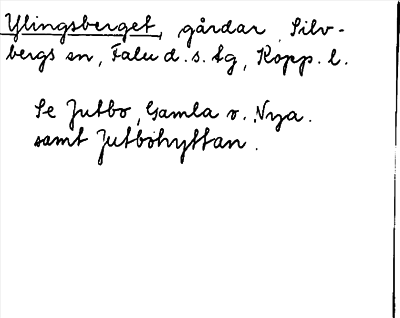 Ylingsberget, gårdar, Silv-
bergs sn, Falu d.s. tg, Kopp. l.
Se Jutbo, Gamla o. Nya.
samt Jutbohyttan.